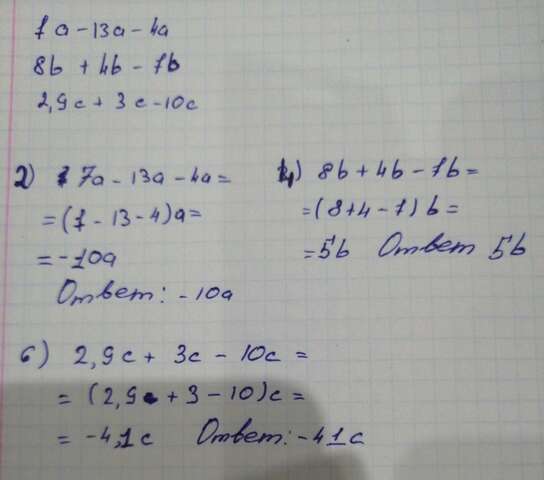 7a - 13a - 4a
8b + 4b - 7b
2,9c + 3c - 10c
2) 7a - 13a - 4a =
= (7 - 13 - 4)a =
= -10a
Ответ: -10a
4) 8b + 4b - 7b =
= (8+4-7)b =
= 5b Ответ 5b
6) 2,9c + 3c - 10c =
= (2,9 + 3 - 10)c =
= -4,1c Ответ: -41c